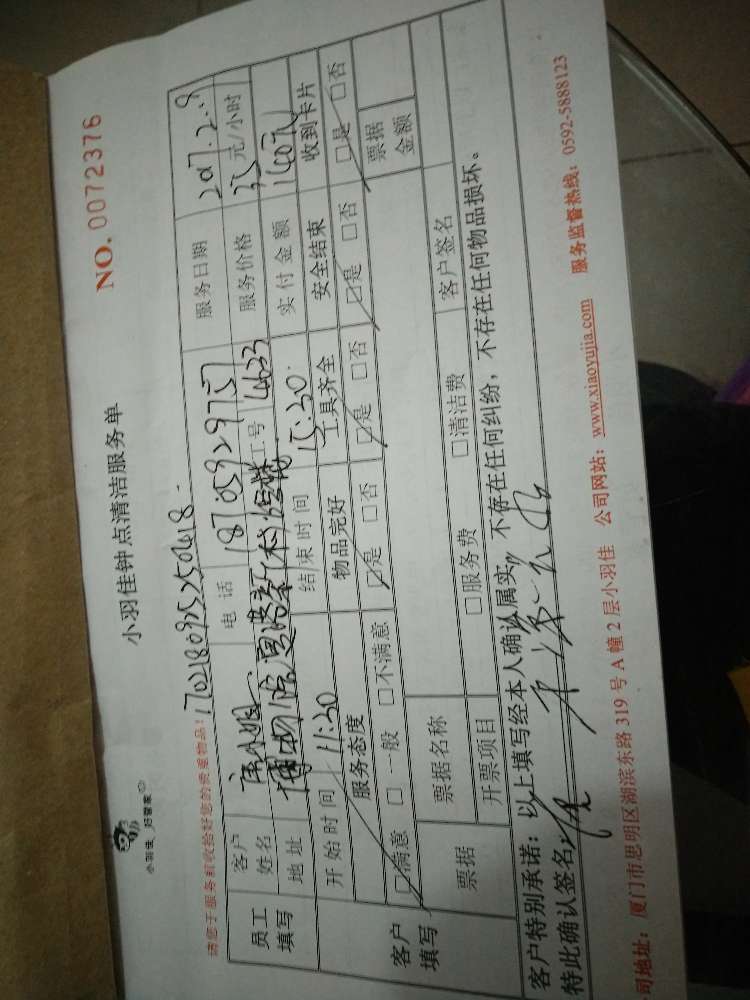 小羽佳 好管家
小羽佳钟点清洁服务单
NO. 0072376
请您于服务前收拾好您的贵重物品!
170218092525041418
员工填写
客户姓名 电话 18705929757 服务日期 2017.2.9
地址 工号 4633 服务价格 35 元/小时
开始时间 11:30 结束时间 15:30 实付金额 140元
客户填写
服务态度 物品完好 工具齐全 安全结束 收到卡片
□满意 □一般 □不满意 □是 □否 □是 □否 □是 □否 □是 □否
票据 票据名称 票据金额
开票项目 □服务费 □清洁费 客户签名
客户特别承诺：以上填写经本人确认属实，不存在任何纠纷，不存在任何物品损坏。
特此确认签名
司地址：厦门市思明区湖滨东路 319 号 A 幢 2 层小羽佳 公司网站：www.xiaoyujia.com 服务监督热线：0592-5888123